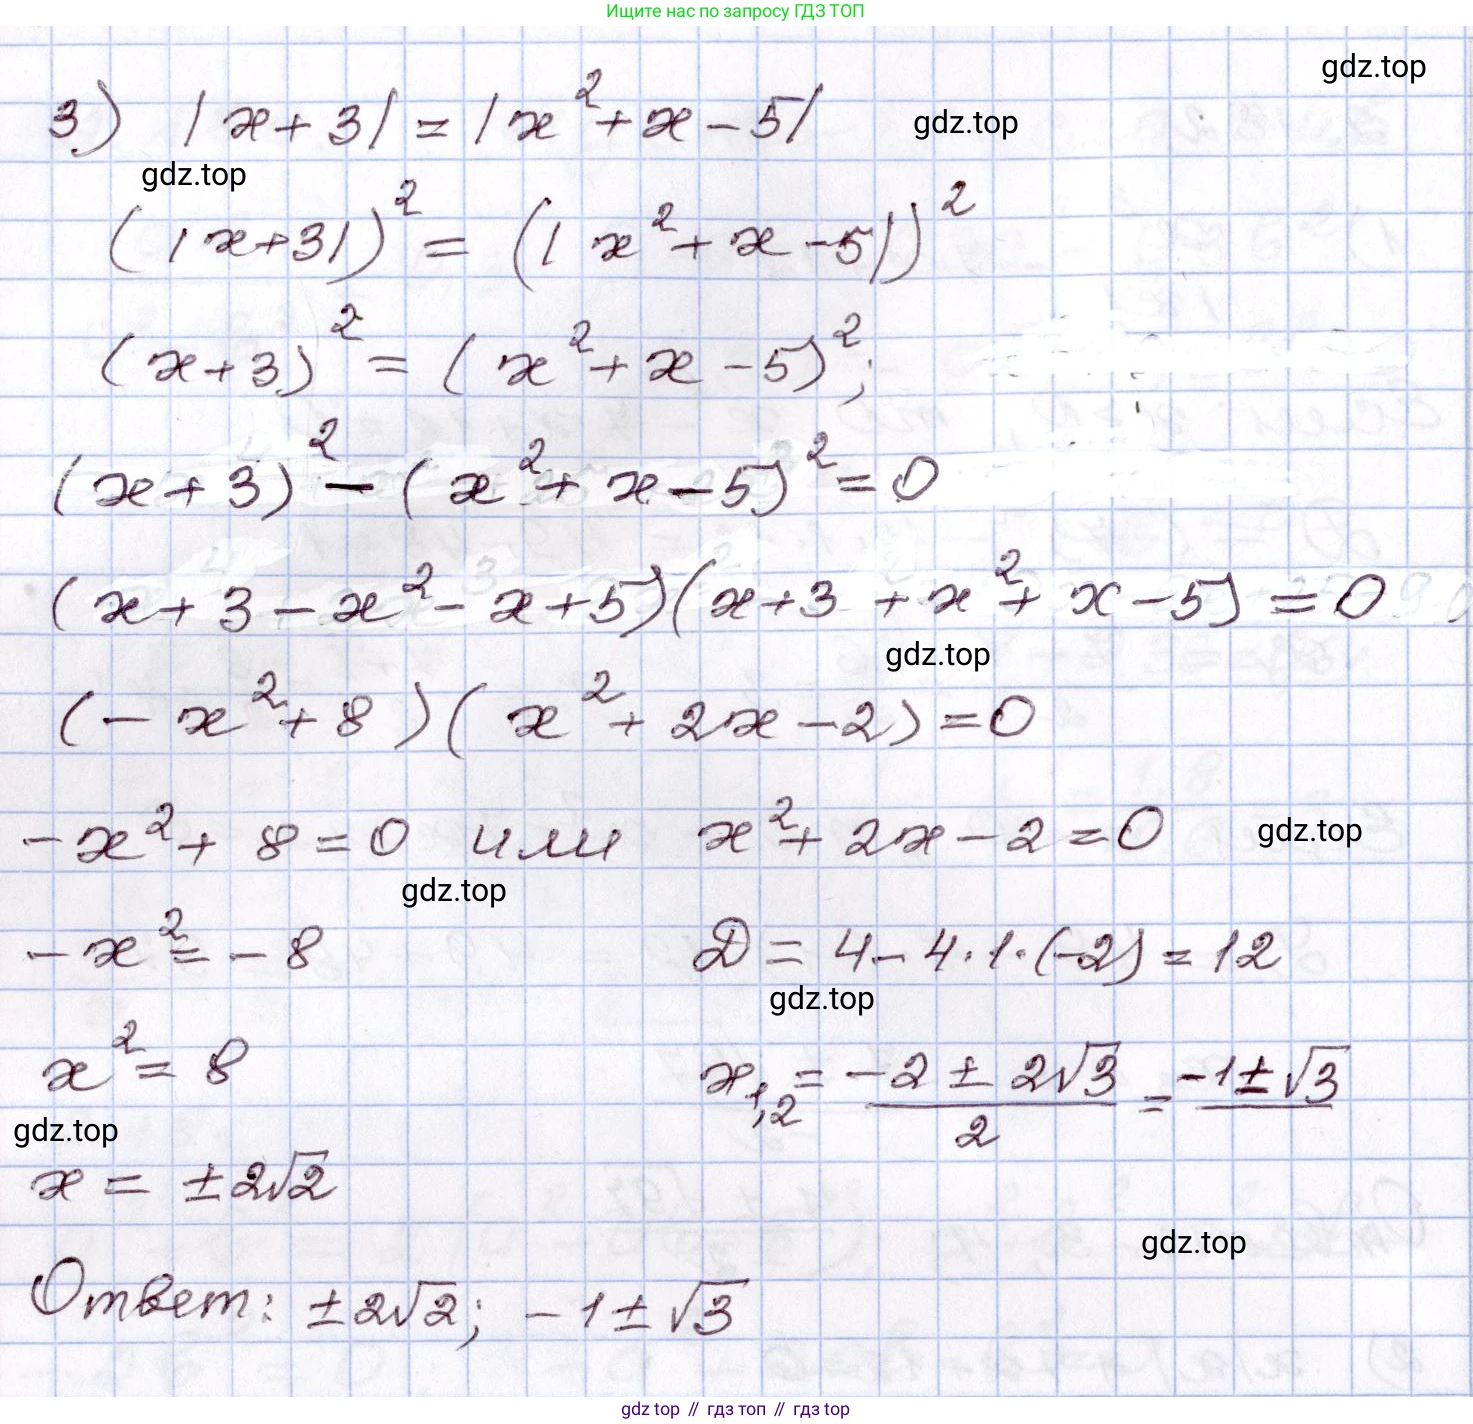 Ищите нас по запросу ГДЗ ТОП
gdz.top
3) |x+3| = |x²+x-5|
gdz.top
gdz.top
(|x+3|)² = (|x²+x-5|)²
(x+3)² = (x²+x-5)²;
(x+3)² - (x²+x-5)² = 0
(x+3-x²-x+5)(x+3+x²+x-5) = 0
gdz.top
(-x²+8)(x²+2x-2) = 0
-x²+8=0 или x²+2x-2=0
gdz.top
gdz.top
-x² = -8 D = 4-4·1·(-2) = 12
gdz.top
x² = 8 x₁,₂ = (-2±2√3)/2 = -1±√3
gdz.top
x = ±2√2
gdz.top
Ответ: ±2√2; -1±√3
gdz top // гдз топ // gdz top